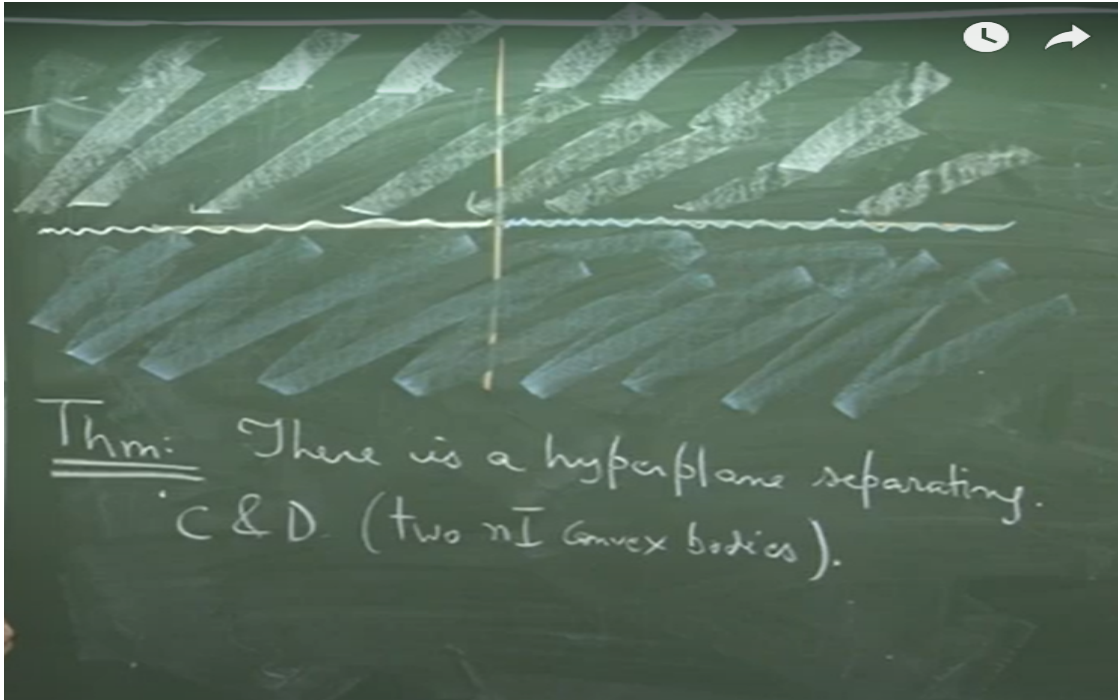 Thm: There is a hyperplane separating.
C & D. (two nI convex bodies).